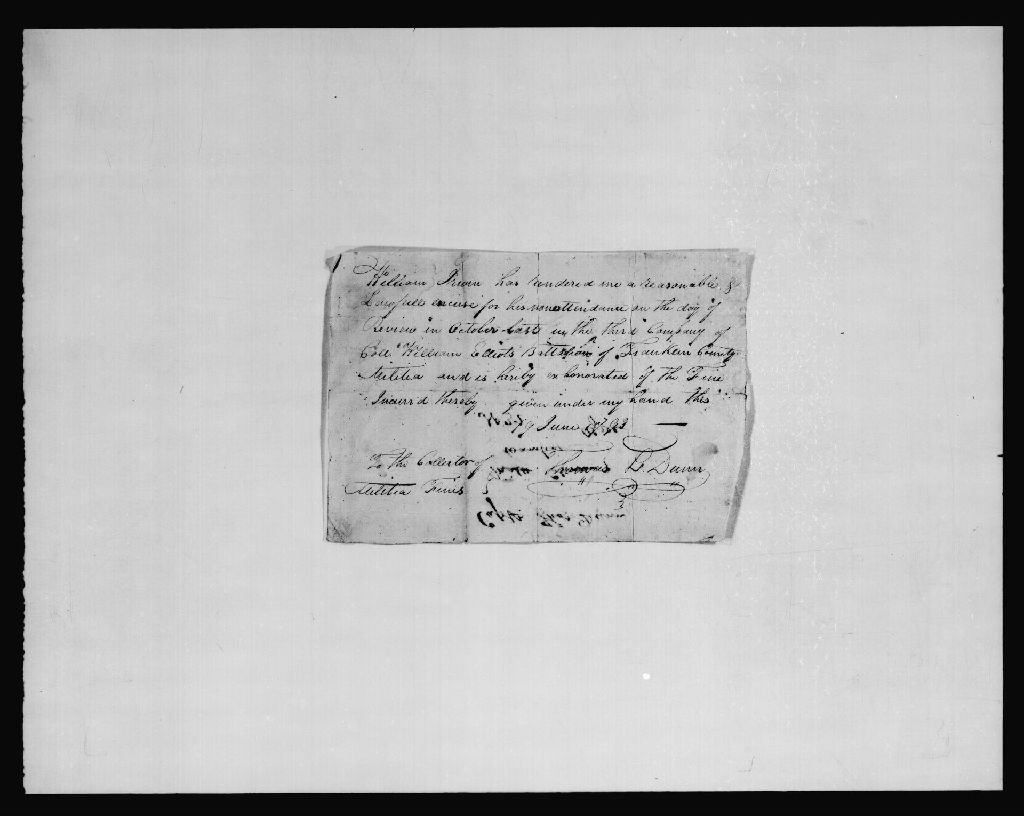 William Irwin has rendered me a reasonable &
Lawfull excuse for his nonattendance on the day of
Review in October Last in the third Company of
Coll William Elliots Battalion of Franklin County
Militia and is hereby exhonorated of the Fine
Incurr'd thereby given under my hand this
9 June
To the Collector of Thomas Dunn
Militia Fines
Capt Thos Dunn